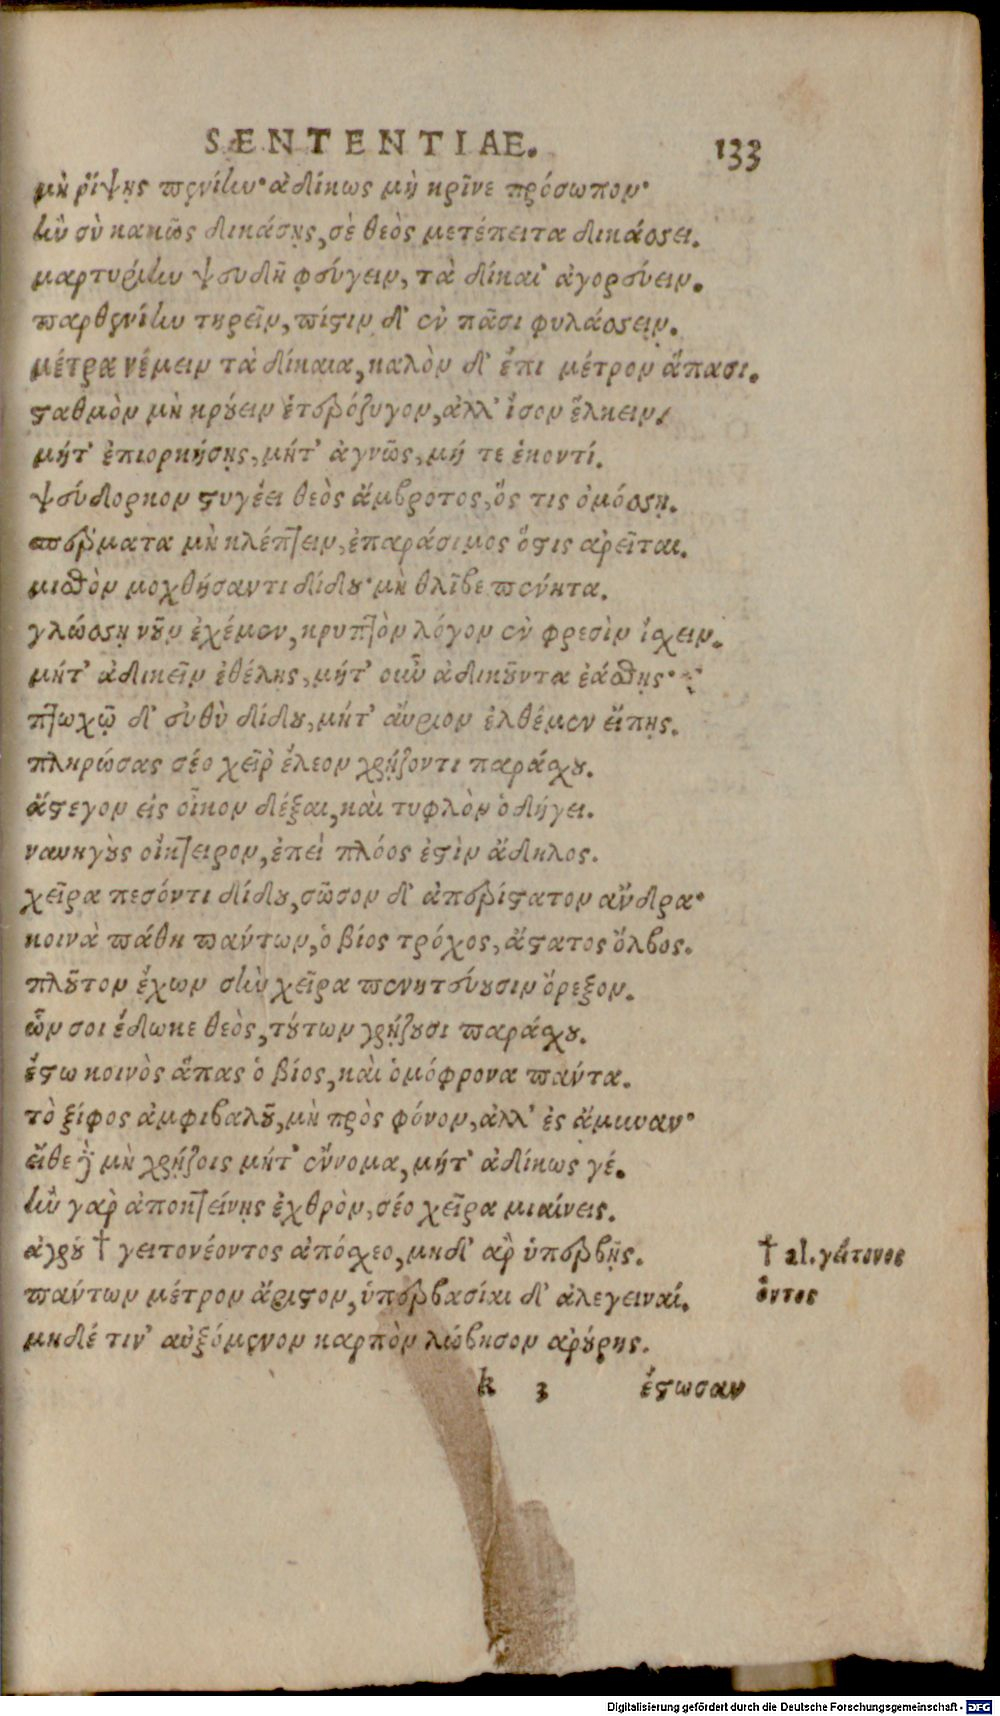 SENTENTIAE. 133
μὴ ῥίψῃς πενίην· ἀδίκως μὴ κρῖνε πρόσωπον·
ἢν σὺ κακῶς δικάσῃς, σὲ θεὸς μετέπειτα δικάσσει.
μαρτυρίην ψευδῆ φεύγειν, τὰ δίκαι' ἀγορεύειν.
παρθενίην τηρεῖν, πίστιν δ' ἐν πᾶσι φυλάσσειν.
μέτρα νέμειν τὰ δίκαια, καλὸν δ' ἔπι μέτρον ἅπασι.
σταθμὸν μὴ κρούειν ἑτερόζυγον, ἀλλ' ἶσον ἕλκειν.
μήτ' ἐπιορκήσῃς, μήτ' ἀγνῶς, μή τε ἑκοντί.
ψεύδορκον στυγέει θεὸς ἄμβροτος, ὅς τις ὀμόσσῃ.
σπέρματα μὴ κλέπτειν, ἐπαράσιμος ὅστις αἱρεῖται.
μισθὸν μοχθήσαντι δίδου· μὴ θλῖβε πένητα.
γλώσσῃ νοῦν ἐχέμεν, κρυπτὸν λόγον ἐν φρεσὶν ἴσχειν.
μήτ' ἀδικεῖν ἐθέλῃς, μήτ' οὖν ἀδικοῦντα ἐάσθῃς·
πτωχῷ δ' εὐθὺ δίδου, μήτ' αὔριον ἐλθέμεν εἴπῃς.
πληρώσας σέο χεῖρ' ἔλεον χρῄζοντι παράσχου.
ἄστεγον εἰς οἶκον δέξαι, καὶ τυφλὸν ὁδήγει.
ναυηγοὺς οἴκτειρον, ἐπεὶ πλόος ἐστὶν ἄδηλος.
χεῖρα πεσόντι δίδου, σῶσον δ' ἀπερίστατον ἄνδρα·
κοινὰ πάθη πάντων, ὁ βίος τρόχος, ἄστατος ὄλβος.
πλοῦτον ἔχων σὴν χεῖρα πενητεύουσιν ὄρεξον.
ὧν σοι ἔδωκε θεὸς, τούτων χρῄζουσι παράσχου.
ἔστω κοινὸς ἅπας ὁ βίος, καὶ ὁμόφρονα πάντα.
τὸ ξίφος ἀμφιβαλοῦ, μὴ πρὸς φόνον, ἀλλ' ἐς ἄμυναν·
εἴθε δὲ μὴ χρῄζοις μήτ' ἔννομα, μήτ' ἀδίκως γέ.
ἢν γὰρ ἀποκτείνῃς ἐχθρὸν, σέο χεῖρα μιαίνεις.
ἀγροῦ † γειτονέοντος ἀπόσχεο, μηδ' ἂρ ὑπερβῇς.
† al. γείτονος
ὄντος
πάντων μέτρον ἄριστον, ὑπερβασίαι δ' ἀλεγειναί.
μηδέ τιν' αὐξόμενον καρπὸν λώβησον ἀρούρης.
k 3 ἔστωσαν
Digitalisierung gefördert durch die Deutsche Forschungsgemeinschaft - DFG